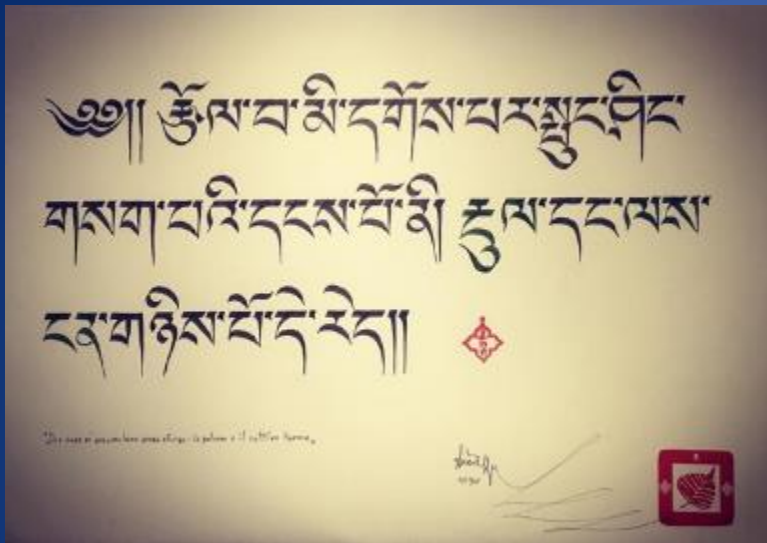 ༄༅།། རྩོལ་བ་མི་དགོས་པར་སླུང་ཤིང་
གསག་པའི་དངས་པོ་ནི། རྡུལ་དང་ལས་
ངན་གཉིས་པོ་དེ་རེད།།
"Due cose si accumulano senza sforzo: la polvere e il cattivo karma"